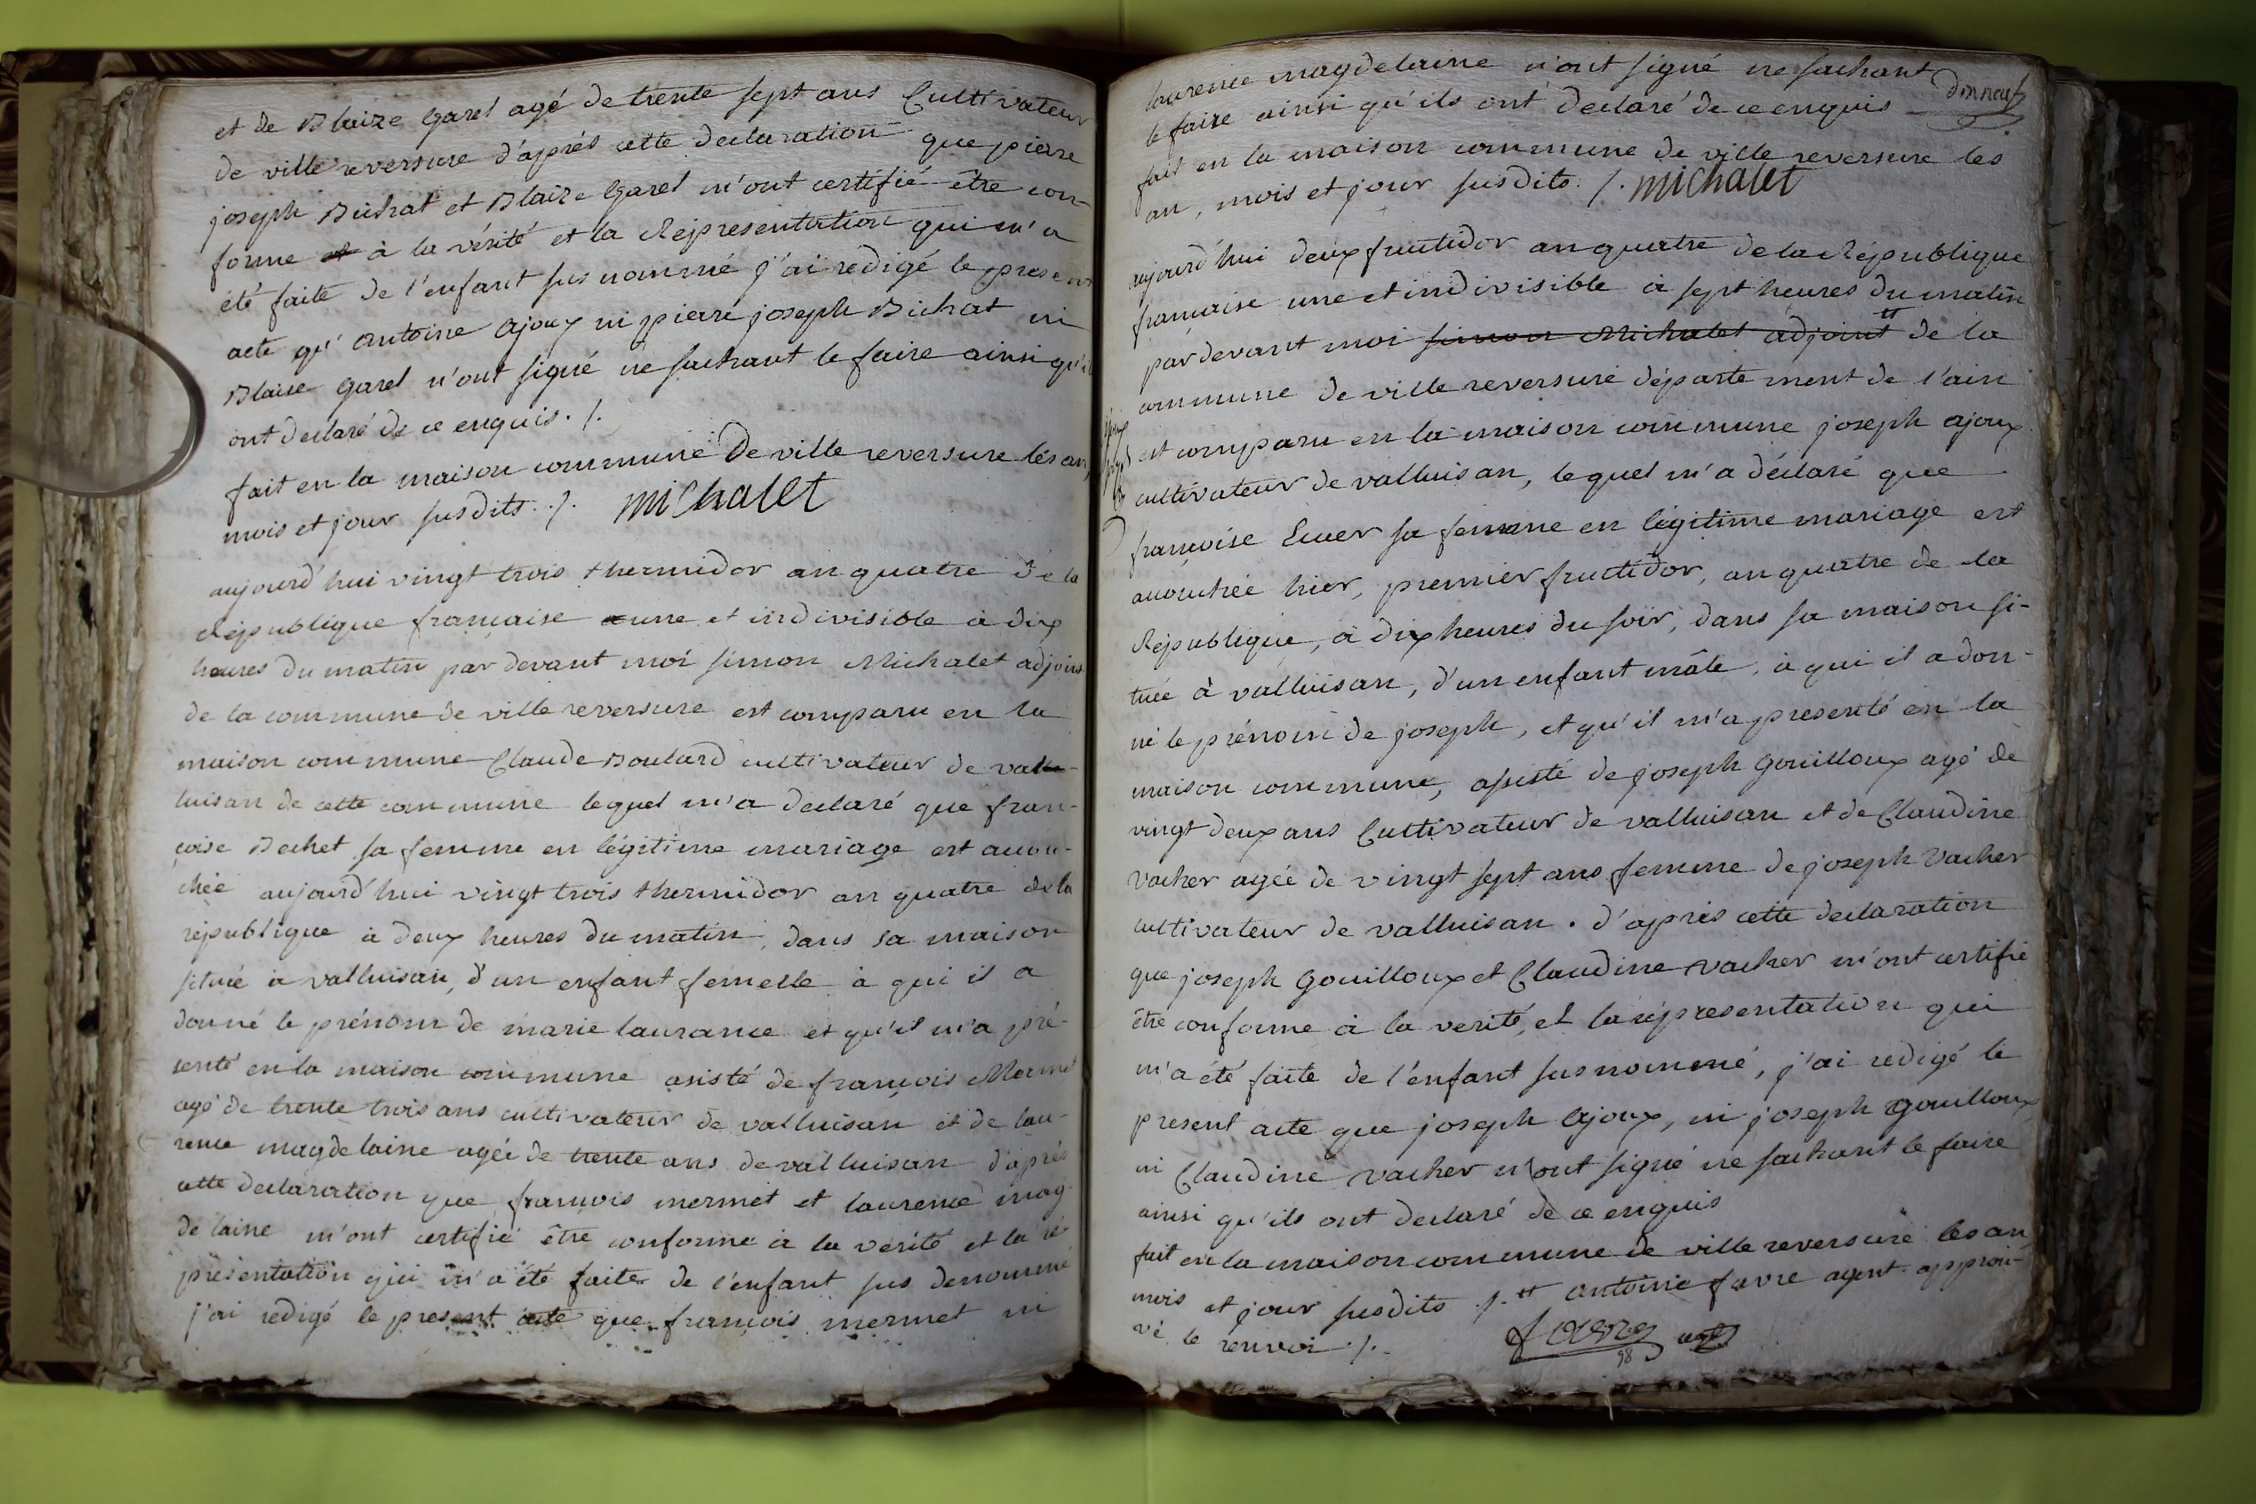 et de Blaize Garel agé de trente sept ans Cultivateur
de ville reversure d'après cette declaration que pierre
joseph Bichat et Blaize Garel m'ont certifié être con-
forme et à la vérité et la Réprésentation qui m'a
été faite de l'enfant sus nommé j'ai redigé le present
acte qu' antoine ajoux ni pierre joseph Bichat ni
Blaise Garel n'ont signé ne sachant le faire ainsi qu'il
ont declaré de ce enquis ./.
fait en la maison commune De ville reversure les an,
mois et jour susdits ./. michalet
aujourd'hui vingt trois thermidor an quatre de la
République française une et indivisible à dix
heures du matin par devant moi simon Michalet adjoint
de la commune de ville reversure est comparu en la
maison commune Claude Boulard cultivateur de val-
luisan de cette commune lequel m'a declaré que fran-
çoise Bechet sa femme en légitime mariage est accou-
chée aujourd'hui vingt trois thermidor an quatre de la
république à deux heures du matin, dans sa maison
située à valluisan, d'un enfant femelle à qui il a
donné le prénom de marie laurance et qu'il m'a pré-
senté en la maison commune asisté de françois Mermet
agé de trente trois ans cultivateur de valluisan et de lau-
rence magdelaine agée de trente ans de valluisan d'après
cette declaration que françois mermet et laurence mag-
delaine m'ont certifié être conforme à la vérité et la ré-
présentation qui m'a été faite de l'enfant sus denommé
j'ai redigé le present acte que françois mermet ni
laurence magdelaine n'ont signé ne sachant
dix neuf
le faire ainsi qu'ils ont declaré de ce enquis
fait en la maison commune de ville reversure les
an, mois et jour susdits ./. michalet
aujourd'hui deux fructidor an quatre de la République
française une et indivisible à sept heures du matin
par devant moi simon Michalet adjoint # de la
commune de ville reversure département de l'ain
est comparu en la maison commune joseph ajoux
cultivateur de valluisan, lequel m'a déclaré que
françoise Cuer sa femme en légitime mariage est
accouchée hier, premier fructidor, an quatre de la
République, à dix heures du soir, dans sa maison si-
tuée à valluisan, d'un enfant mâle, à qui il a don-
né le prénom de joseph, et qu'il m'a presenté en la
maison commune, assisté de joseph Gouilloux agé de
vingt deux ans Cultivateur de valluisan et de Claudine
vacher agée de vingt sept ans femme de joseph vacher
cultivateur de valluisan. d'après cette declaration
que joseph Gouilloux et Claudine vacher m'ont certifié
être conforme à la verité, et la réprésentation qui
m'a été faite de l'enfant sus nommé, j'ai redigé le
présent acte que joseph Ajoux, ni joseph Gouilloux
ni Claudine vacher n'ont signé ne sachant le faire
ainsi qu'ils ont declaré de ce enquis
fait en la maison commune de ville reversure les an,
mois et jour susdits ./. # antoine favre agent approu-
vé le renvoi ./.
favre agt
98